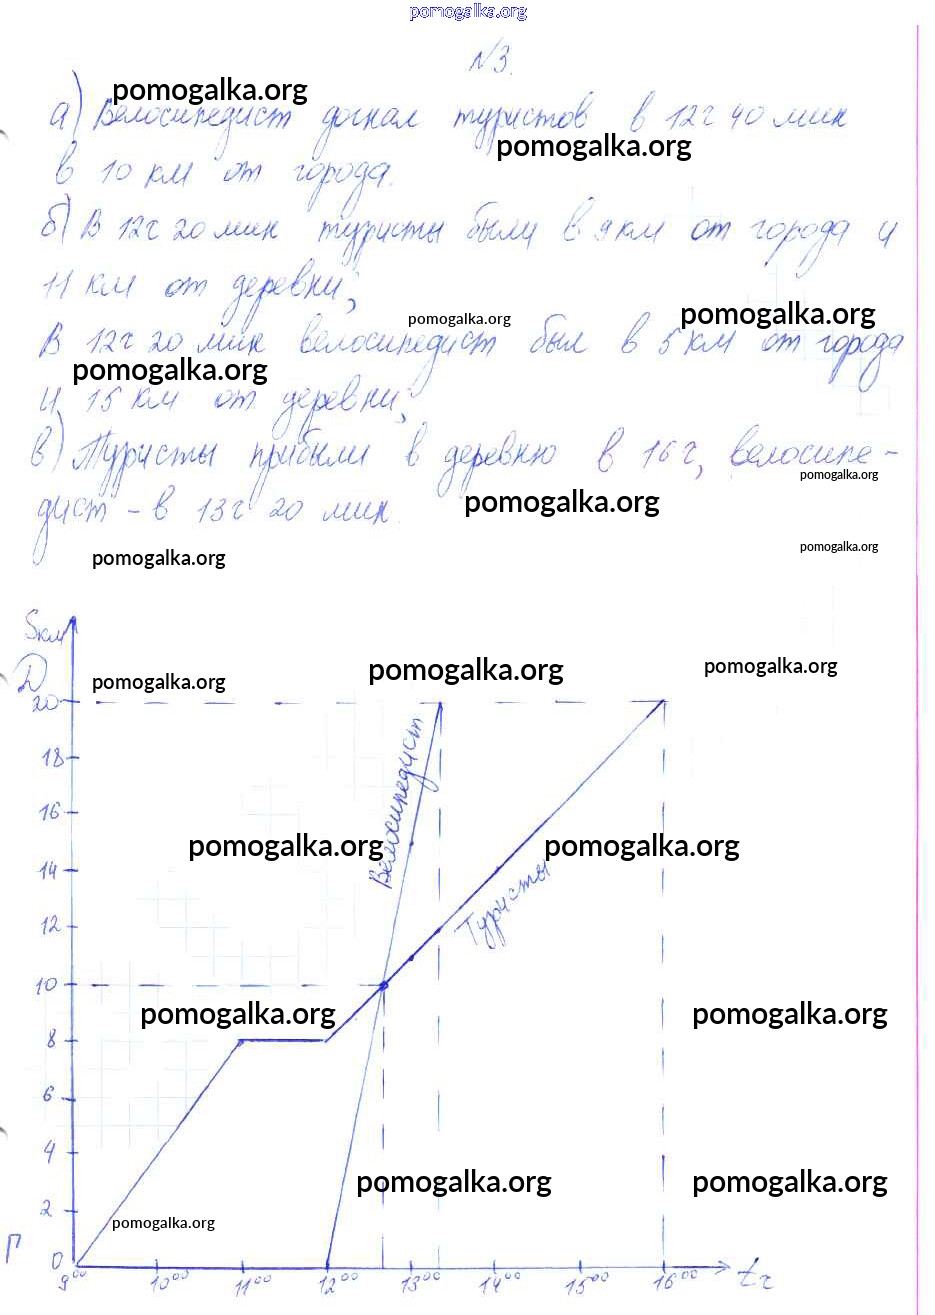 pomogalka.org
№3.
pomogalka.org
а) Велосипедист догнал туристов в 12ч 40 мин
pomogalka.org
в 10 км от города.
б) В 12ч 20 мин туристы были в 9 км от города и
11 км от деревни;
pomogalka.org
pomogalka.org
В 12ч 20 мин велосипедист был в 5 км от города
pomogalka.org
и 15 км от деревни;
в) Туристы прибыли в деревню в 16 ч, велосипе-
pomogalka.org
дист - в 13ч 20 мин.
pomogalka.org
pomogalka.org
pomogalka.org
Sкм
Д
pomogalka.org
pomogalka.org
pomogalka.org
20
Велосипедист
18
16
pomogalka.org
pomogalka.org
14
Туристы
12
10
pomogalka.org
pomogalka.org
8
6
4
pomogalka.org
pomogalka.org
2
pomogalka.org
Г
0
9⁰⁰ 10⁰⁰ 11⁰⁰ 12⁰⁰ 13⁰⁰ 14⁰⁰ 15⁰⁰ 16⁰⁰ tч